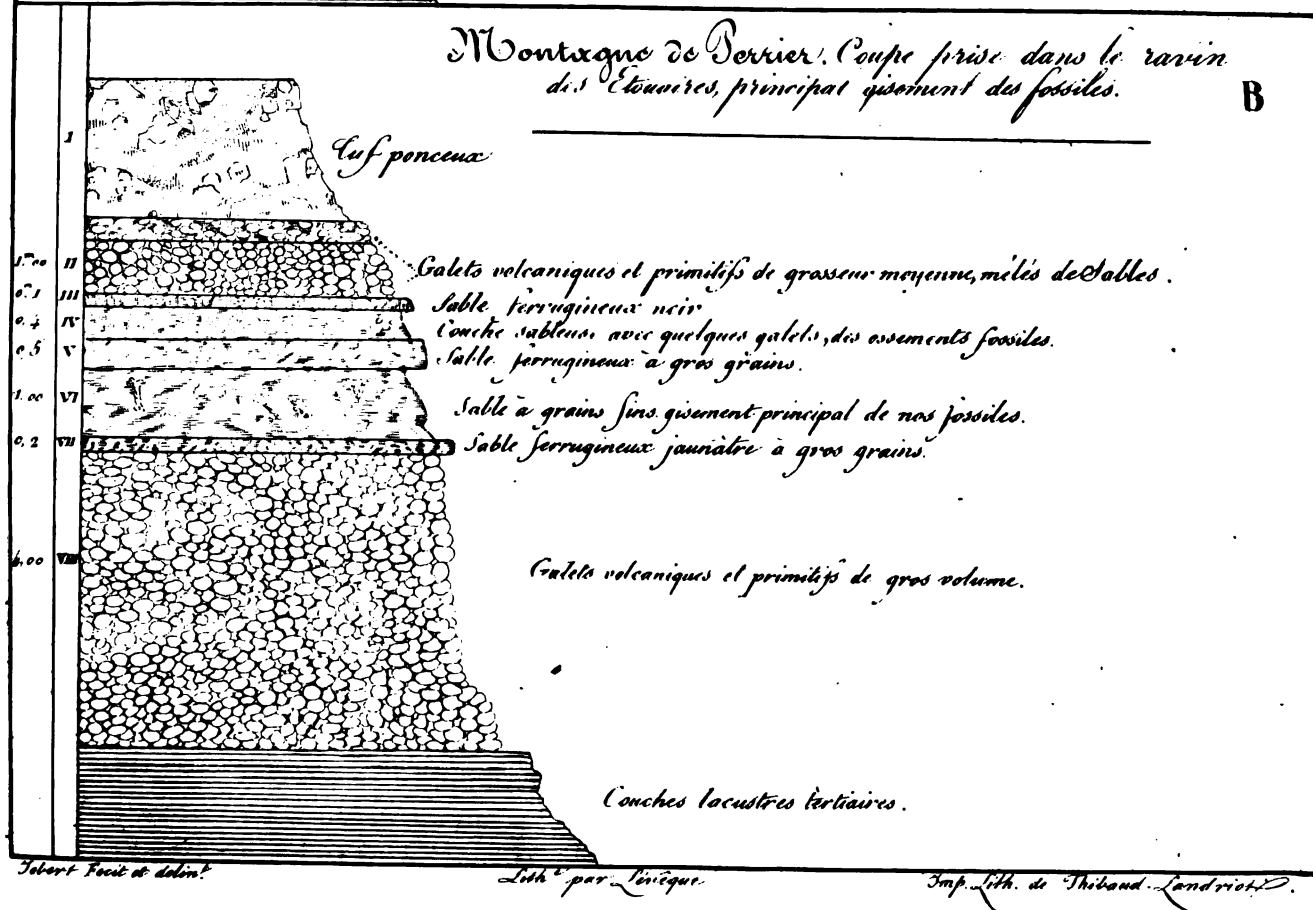 Montagne de Perrier. Coupe prise dans le ravin
des Etouaires, principal gisement des fossiles.
B
I
Tuf ponceux
1.m00 II Galets volcaniques et primitifs de grosseur moyenne, mêlés de Sables.
0.1 III Sable ferrugineux noir
0.4 IV Couche sableuse avec quelques galets, des ossements fossiles.
0.5 V Sable ferrugineux à gros grains.
1.00 VI Sable à grains fins gisement principal de nos fossiles.
0.2 VII Sable ferrugineux jaunâtre à gros grains.
VIII Galets volcaniques et primitifs de gros volume.
Couches lacustres tertiaires.
Jobert Fecit et delint.
Litht. par Lévèque
Imp. Lith. de Thibaud-Landriot.